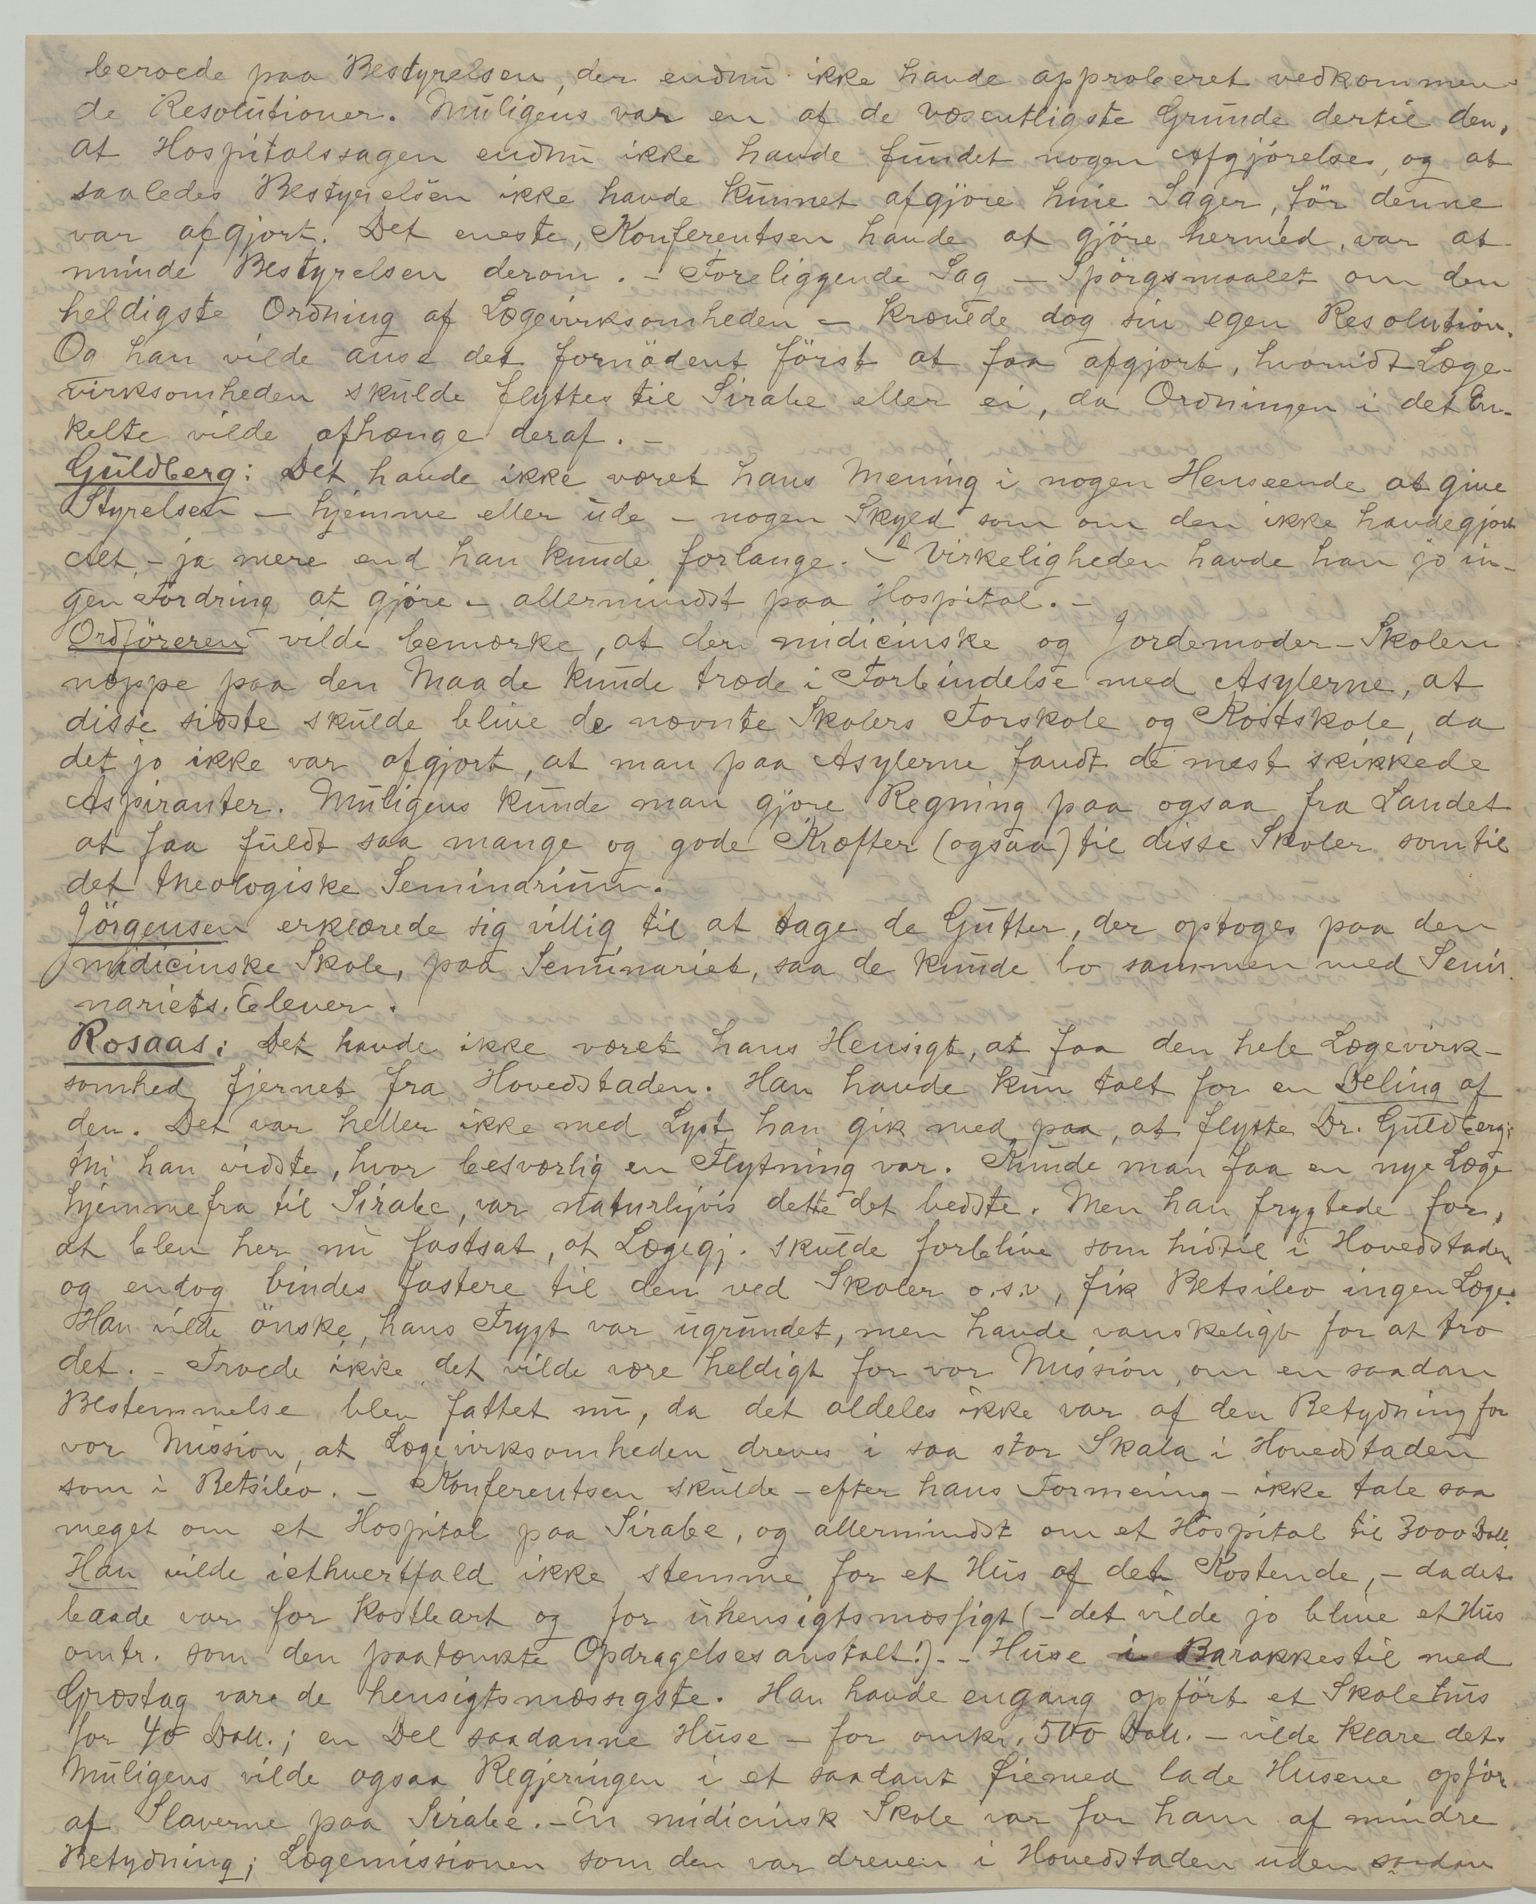 beroede paa Bestyrelsen, der endnu ikke havde approberet vedkommen-
de Resolutioner. Muligens var en af de væsentligste Grunde dertil den,
at Hospitalssagen endnu ikke havde fundet nogen Afgjørelse, og at
saaledes Bestyrelsen ikke havde kunnet afgjøre hine Sager, før denne
var afgjort. Det eneste, Konferentsen havde at gjøre hermed, var at
minde Bestyrelsen derom. - Foreliggende Sag - Spørgsmaalet om den
heldigste Ordning af Lægevirksomheden - krævede dog sin egen Resolution.
Og han vilde anse det fornødent først at faa afgjort, hvorvidt Læge-
virksomheden skulde flyttes til Sirabe eller ei, da Ordningen i det En-
kelte vilde afhænge deraf. -
Guldberg: Det havde ikke været hans Mening i nogen Henseende at give
Styrelsen - hjemme eller ude - nogen Skyld som om den ikke havde gjort
Alt, - ja mere end han kunde forlange. - I Virkeligheden havde han jo in-
gen Fordring at gjøre - allermindst paa Hospital. -
Ordføreren vilde bemærke, at den midicinske og Jordemoder-Skolen
neppe paa den Maade kunde træde i Forbindelse med Asylerne, at
disse sidste skulde blive de nævnte Skolers Forskole og Kostskole, da
det jo ikke var afgjort, at man paa Asylerne fandt de mest skikkede
Aspiranter. Muligens kunde man gjøre Regning paa ogsaa fra Landet
at faa fuldt saa mange og gode Kræfter (ogsaa) til disse Skoler som til
det theologiske Seminarium.
Jörgensen erklærede sig villig til at tage de Gutter, der optoges paa den
midicinske Skole, paa Seminariet, saa de kunde bo sammen med Semi-
nariets Elever.
Rosaas: Det havde ikke været hans Hensigt, at faa den hele Lægevirk-
somhed fjernet fra Hovedstaden. Han havde kun talt for en Deling af
den. Det var heller ikke med Lyst han gik med paa, at flytte Dr. Guldberg;
thi han vidste, hvor besværlig en Flytning var. Kunde man faa en nye Læge
hjemmefra til Sirabe, var naturligvis dette det bedste. Men han frygtede for,
at blev her nu fastsat, at Lægegj. skulde forblive som hidtil i Hovedstaden
og endog bindes fastere til den ved Skoler o.s.v, fik Betsileo ingen Læge.
Han vilde önske, hans Frygt var ugrundet, men havde vanskeligt for at tro
det. - Troede ikke det vilde være heldigt for vor Mission, om en saadan
Bestemmelse blev fattet nu, da det aldeles ikke var af den Betydning for
vor Mission, at Lægevirksomheden dreves i saa stor Skala i Hovedstaden
som i Betsileo. - Konferentsen skulde - efter hans Formening - ikke tale saa
meget om et Hospital paa Sirabe, og allermindst om et Hospital til 3000 Doll.
Han vilde iethvertfald ikke stemme for et Hus af det Kostende, - da det
baade var for kostbart og for uhensigtsmæssigt (- det vilde jo blive et Hus
omtr. som den paatænkte Opdragelsesanstalt!). - Huse i Barakkestil med
Græstag vare de hensigtsmæssigste. Han havde engang opført et Skolehus
for 40 Doll.; en Del saadanne Huse - for omkr. 500 Doll. - vilde klare det.
Muligens vilde ogsaa Regjeringen i et saadant Øiemed lade Husene opför.
af Slaverne paa Sirabe. - En midicinsk Skole var for ham af mindre
Betydning; Lægemissionen som den var dreven i Hovedstaden uden saadan